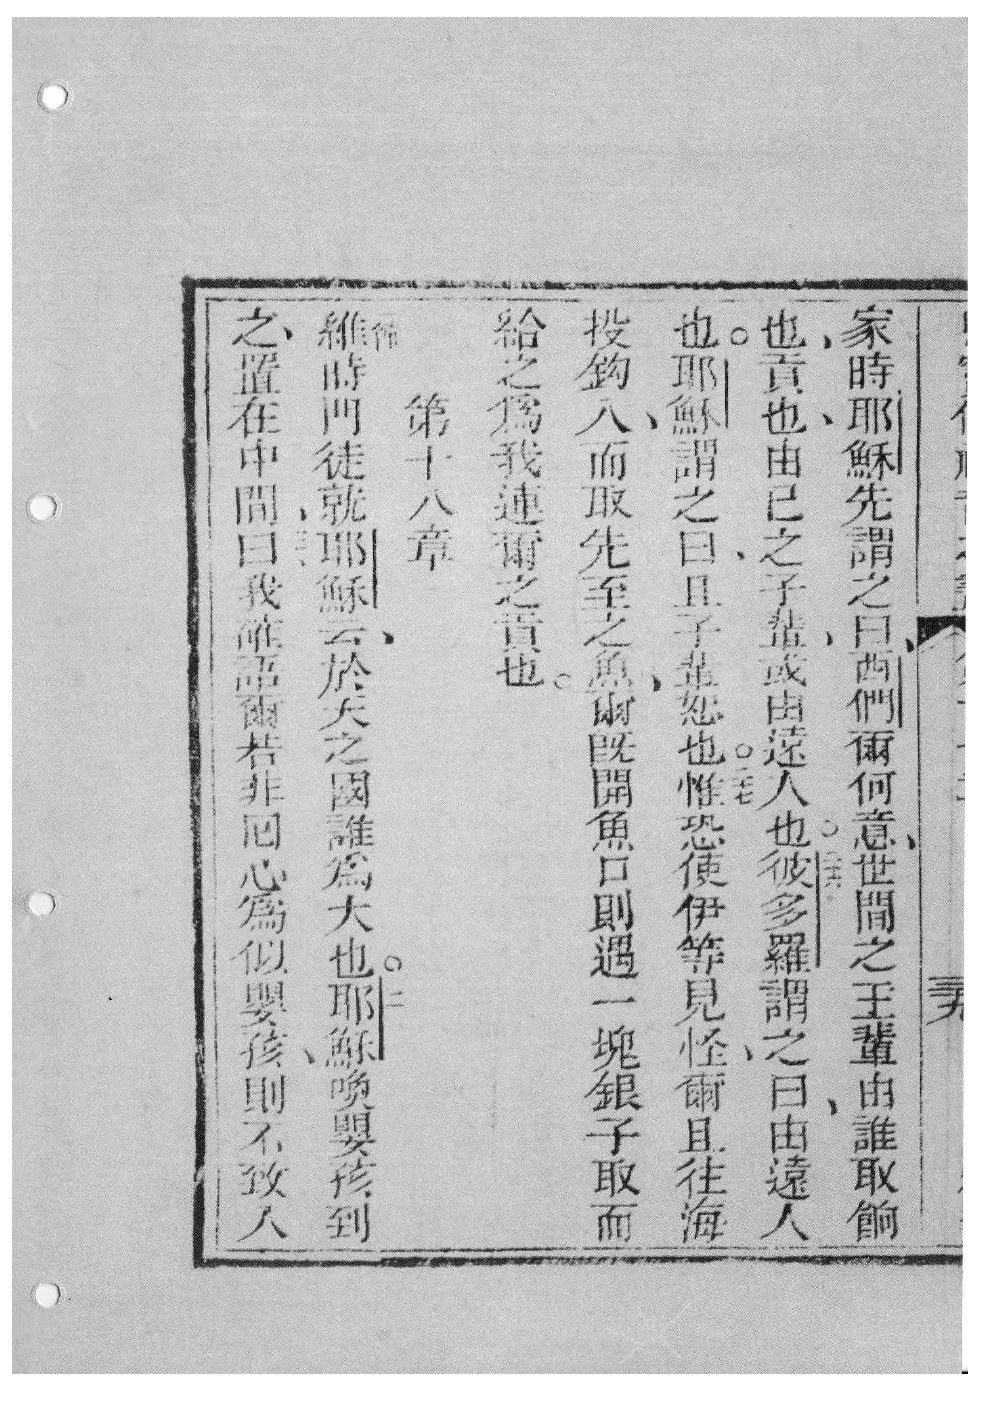 家時耶穌先謂之曰、西們爾何意、世間之王輩由誰取餉
也、貢也、由己之子輩、或由遠人也。二十六彼多羅謂之曰、由遠人
也。耶穌謂之曰、且子輩恕也。二十七惟恐使伊等見怪、爾且往海
投鈎入、而取先至之魚、爾旣開魚口則遇一塊銀子取而
給之爲我連爾之貢也。
第十八章
一節維時門徒就耶穌云、於天之國誰爲大也。二耶穌喚嬰孩到
之、置在中間、三曰我確語爾若非囘心爲似嬰孩、則不致人